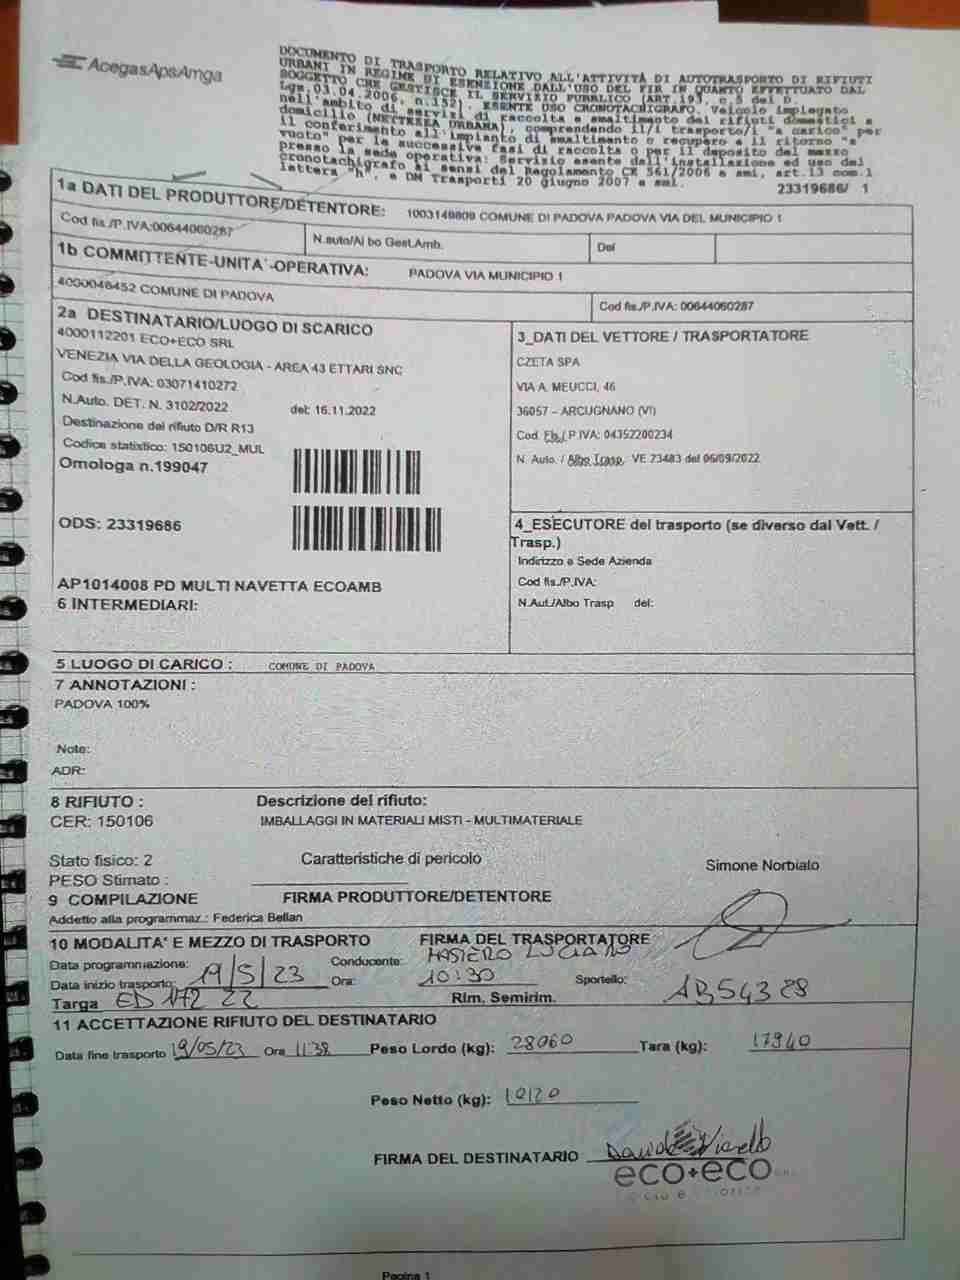 AcegasApsAmga
DOCUMENTO DI TRASPORTO RELATIVO ALL'ATTIVITÀ DI AUTOTRASPORTO DI RIFIUTI
URBANI IN REGIME DI ESENZIONE DALL'USO DEL FIR IN QUANTO EFFETTUATO DAL
SOGGETTO CHE GESTISCE IL SERVIZIO PUBBLICO (ART.193, c.5 del D.
Lgs.03.04.2006, n.152). ESENTE USO CRONOTACHIGRAFO. Veicolo impiegato
nell'ambito di servizi di raccolta e smaltimento dei rifiuti domestici a
domicilio (NETTEZZA URBANA), comprendendo il/i trasporto/i "a carico" per
il conferimento all'impianto di smaltimento o recupero e il ritorno "a
vuoto" per le successive fasi di raccolta o per il deposito del mezzo
presso la sede operativa: Servizio esente dall'installazione ed uso del
cronotachigrafo ai sensi del Regolamento CE 561/2006 e smi, art.13 com.1
lettera "h", e DM Trasporti 20 giugno 2007 e smi.
23319686/ 1
1a DATI DEL PRODUTTORE/DETENTORE: 1003149809 COMUNE DI PADOVA PADOVA VIA DEL MUNICIPIO 1
Cod fis./P.IVA:00644060287 N.auto/Al bo Gest.Amb. Del
1b COMMITTENTE-UNITA'-OPERATIVA: PADOVA VIA MUNICIPIO 1
4000046452 COMUNE DI PADOVA Cod fis./P.IVA: 00644060287
2a DESTINATARIO/LUOGO DI SCARICO
4000112201 ECO+ECO SRL
VENEZIA VIA DELLA GEOLOGIA - AREA 43 ETTARI SNC
Cod fis./P.IVA: 03071410272
N.Auto. DET. N. 3102/2022 del: 16.11.2022
Destinazione del rifiuto D/R R13
Codice statistico: 150106U2_MUL
Omologa n.199047
ODS: 23319686
AP1014008 PD MULTI NAVETTA ECOAMB
6 INTERMEDIARI:
3_DATI DEL VETTORE / TRASPORTATORE
CZETA SPA
VIA A. MEUCCI, 46
36057 – ARCUGNANO (VI)
Cod. Fis./ P.IVA: 04352200234
N. Auto. / Albo Trasp. VE 73483 del 06/09/2022
4_ESECUTORE del trasporto (se diverso dal Vett. /
Trasp.)
Indirizzo e Sede Azienda
Cod fis./P.IVA:
N.Aut./Albo Trasp del:
5 LUOGO DI CARICO : COMUNE DI PADOVA
7 ANNOTAZIONI :
PADOVA 100%
Note:
ADR:
8 RIFIUTO : Descrizione del rifiuto:
CER: 150106 IMBALLAGGI IN MATERIALI MISTI - MULTIMATERIALE
Stato fisico: 2 Caratteristiche di pericolo Simone Norbiato
PESO Stimato :
9 COMPILAZIONE FIRMA PRODUTTORE/DETENTORE
Addetto alla programmaz.: Federica Bellan
10 MODALITA' E MEZZO DI TRASPORTO FIRMA DEL TRASPORTATORE
Data programmazione: Conducente: MASIERO LUCIANO
Data inizio trasporto: 19/5/23 Ora: 10:30 Sportello:
Targa ED 172 ZZ Rim. Semirim. AB54328
11 ACCETTAZIONE RIFIUTO DEL DESTINATARIO
Data fine trasporto 19/05/23 Ora 11:38 Peso Lordo (kg): 28060 Tara (kg): 17940
Peso Netto (kg): 10120
FIRMA DEL DESTINATARIO Davide Vianello
eco+eco
Pagina 1